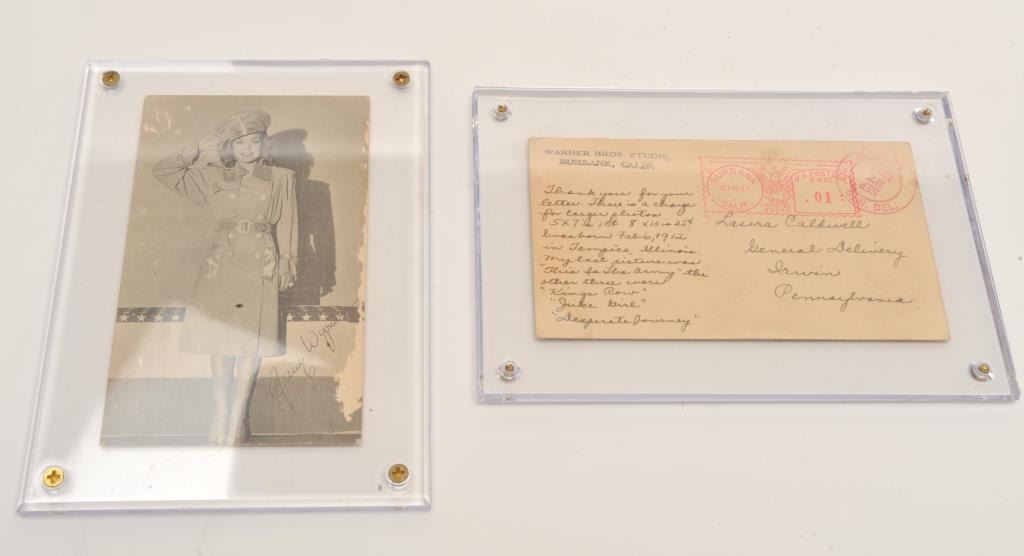 Jane Wyman
WARNER BROS. STUDIO
BURBANK, CALIF.
Thank you for your
letter. There is a charge
for larger photos
5X7 is 10¢ 8X10 is 25¢
I was born Feb 6, 1912
in Tampico, Illinois.
My last picture was
"This Is The Army" the
other three were
"Kings Row"
"Juke Girl"
"Desperate Journey"
BURBANK
CALIF.
U.S. POSTAGE
PAID
.01
DEL.
Laura Caldwell
General Delivery
Irwin
Pennsylvania